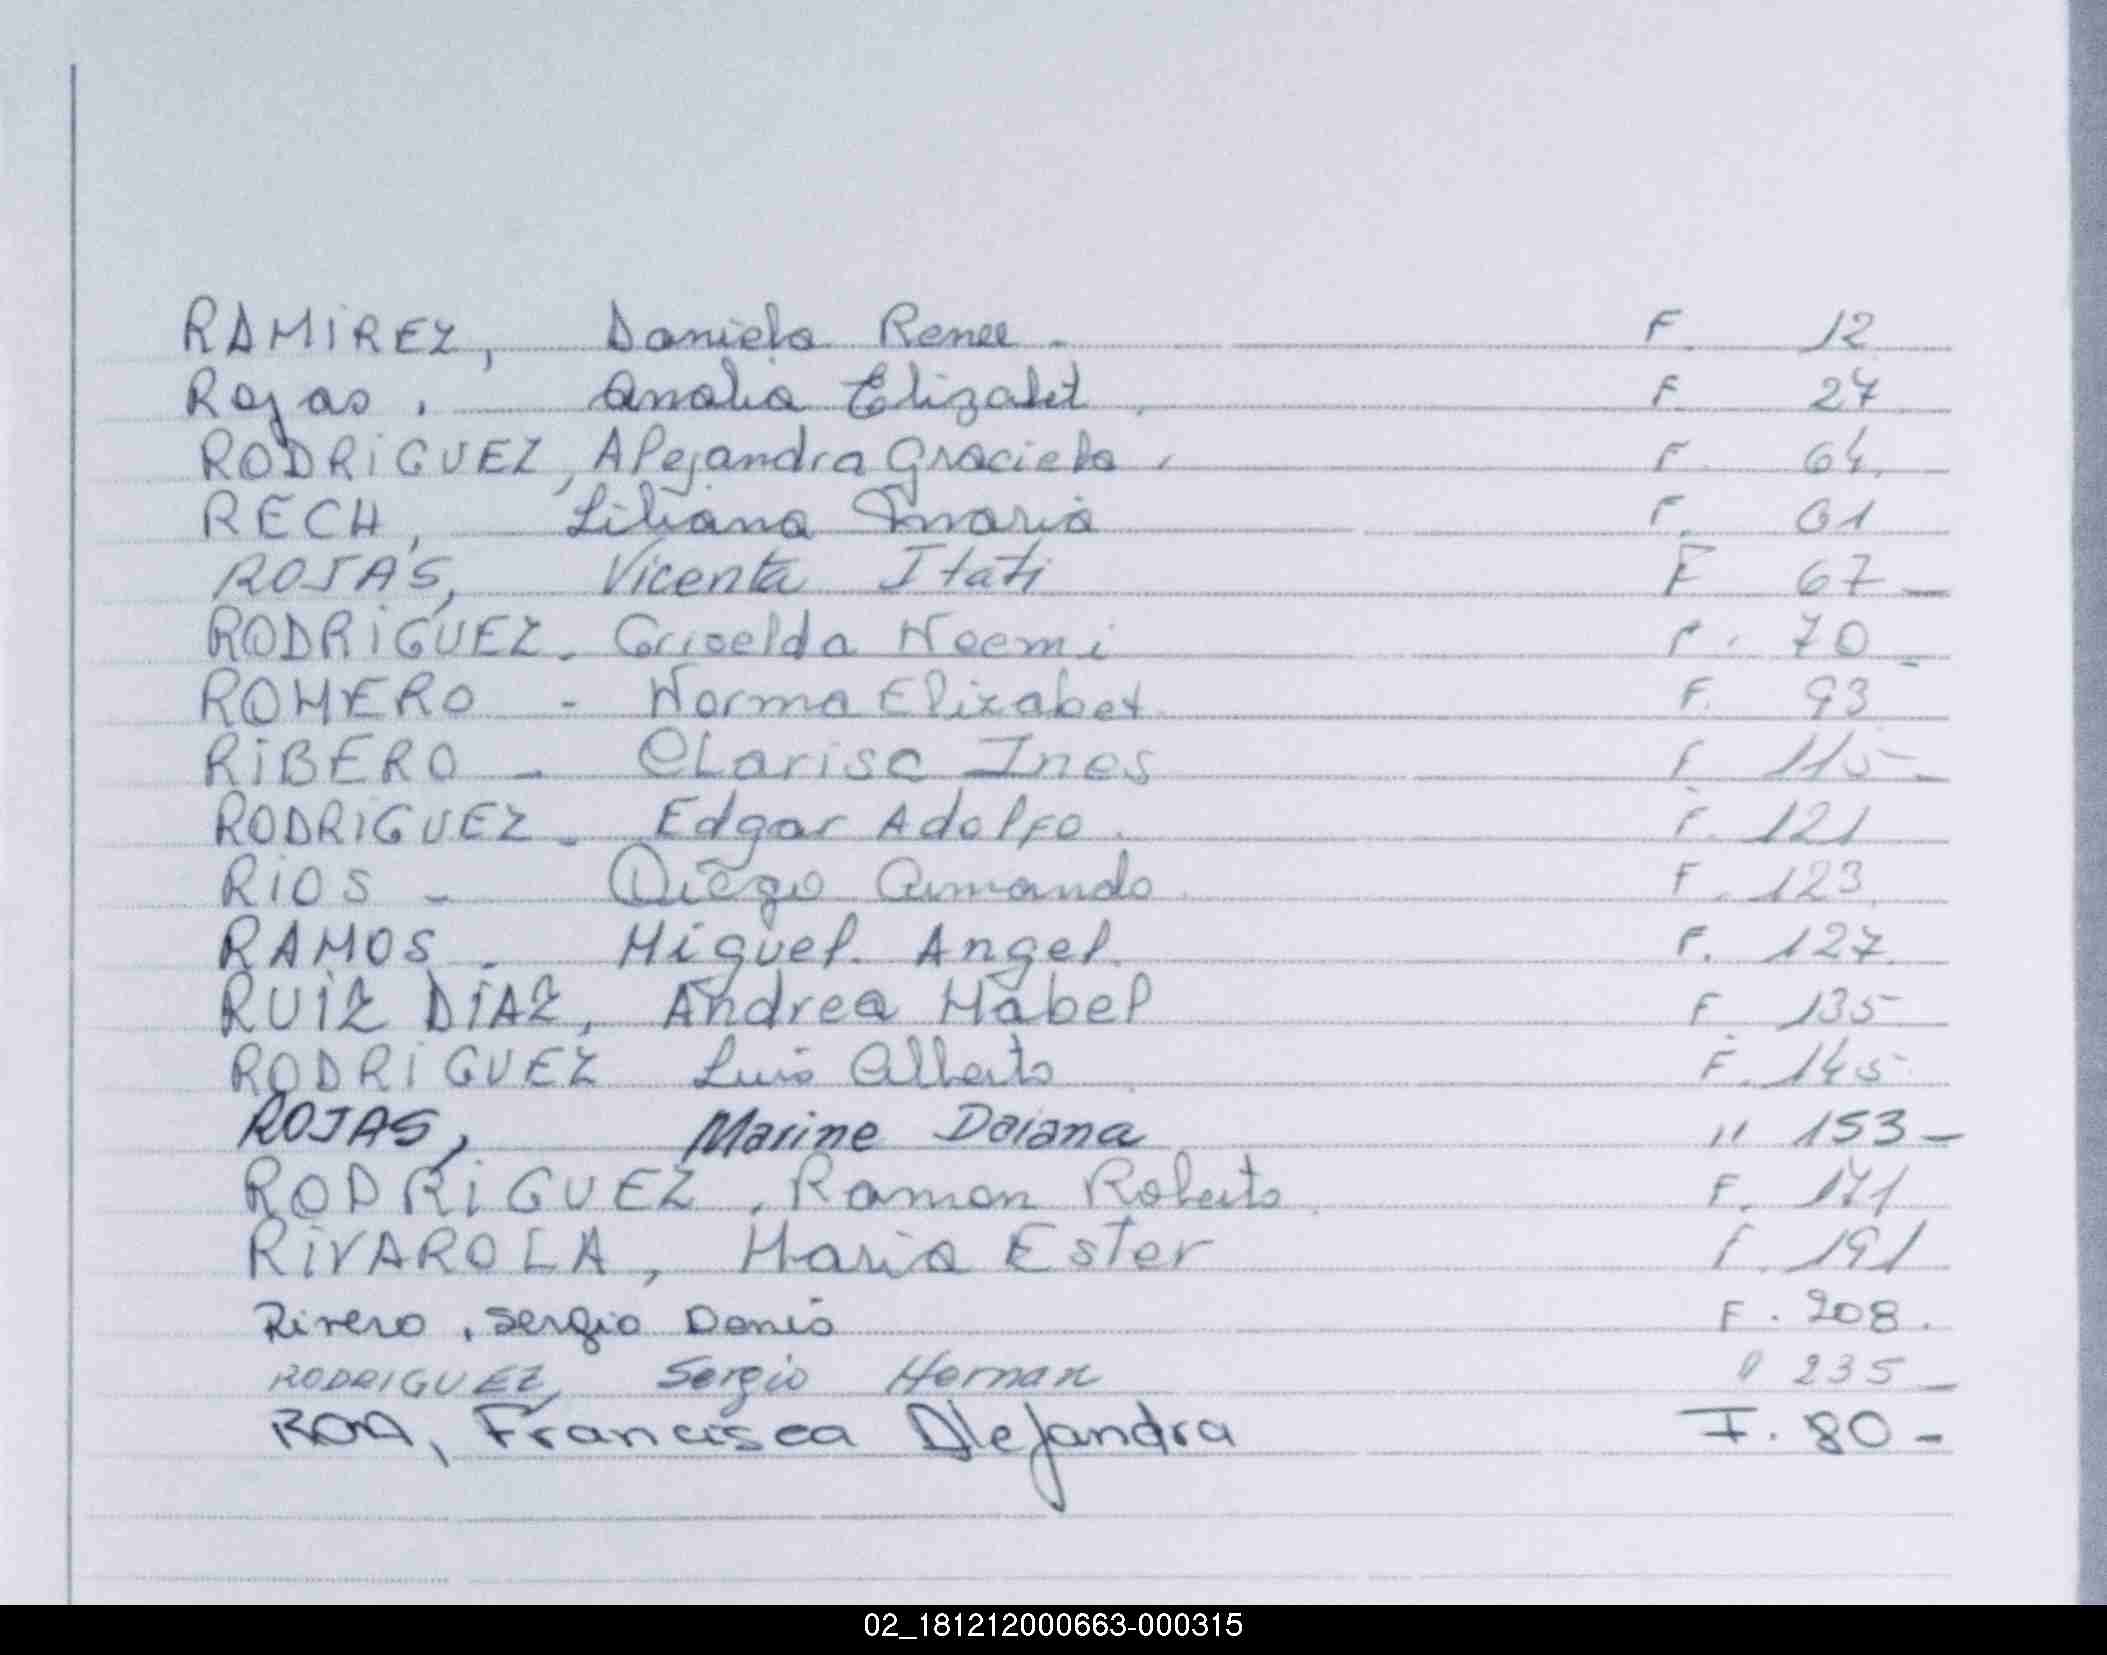 RAMIREZ, Daniela Renee - F. 12
Rojas, Analia Elizabet. F. 27
RODRIGUEZ, Alejandra Graciela. F. 64.
RECH, Liliana Maria F. 61
ROJAS, Vicenta Itati F 67 —
RODRIGUEZ - Griselda Noemi F. 70 -
ROMERO - Norma Elizabet F. 93
RIBERO - Clarisa Ines F 115 -
RODRIGUEZ - Edgar Adolfo. F. 121
RIOS - Diego Armando. F. 123.
RAMOS - Miguel. Angel. F. 127.
RUIZ DIAZ, Andrea Mabel F 135
RODRIGUEZ Luis Alberto F. 145
ROJAS, Marine Daiana " 153 —
RODRIGUEZ, Ramon Roberto. F. 171
RIVAROLA, Maria Ester F. 191
Rivero, Sergio Denis F. 208.
RODRIGUEZ, Sergio Hernan 235 —
ROA, Francisca Alejandra F. 80 -
02_181212000663-000315